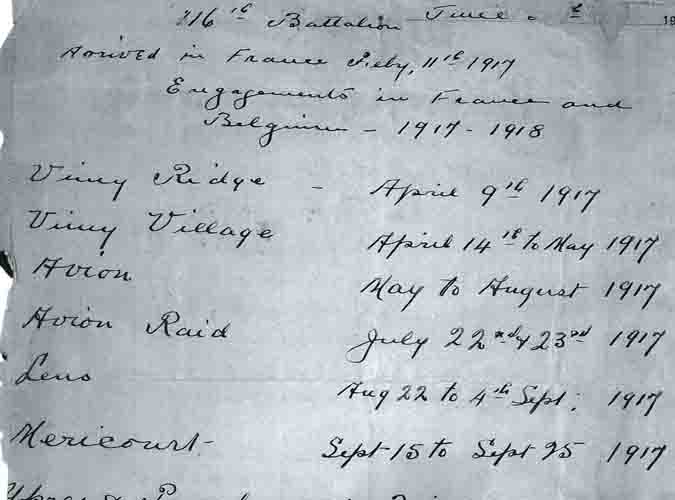 116th Battalion
19
Arrived in France Feby, 11th 1917
Engagements in France and
Belgium - 1917 - 1918
Vimy Ridge - April 9th 1917
Vimy Village April 14th to May 1917
Avion May to August 1917
Avion Raid July 22nd & 23rd 1917
Lens Aug 22 to 4th Sept. 1917
Mericourt Sept 15 to Sept 25 1917